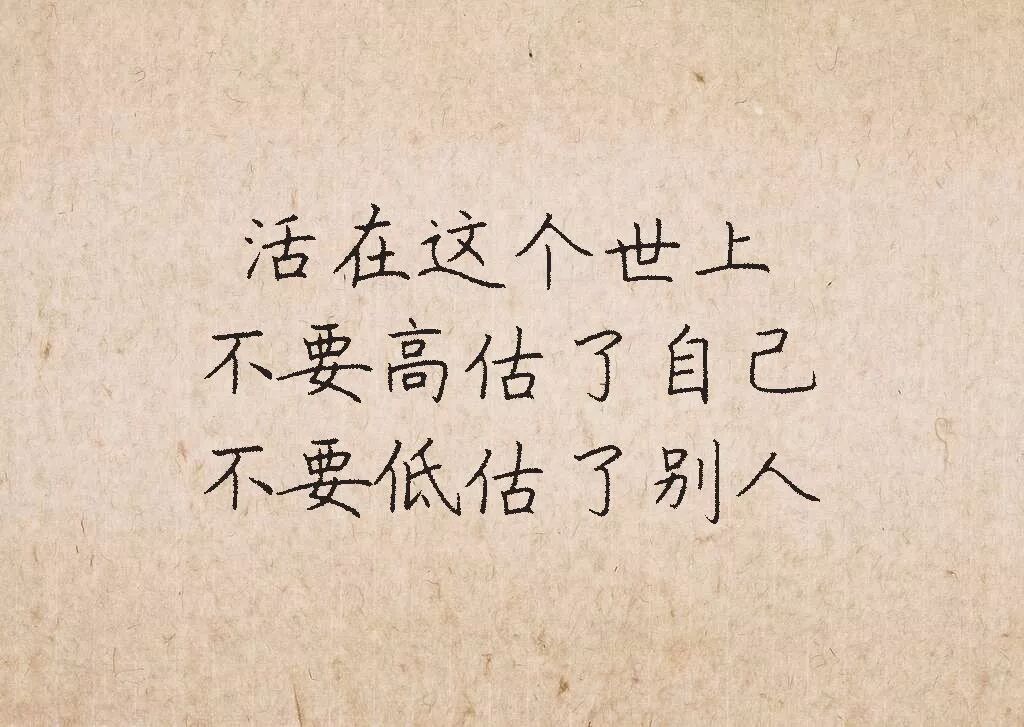 活在这个世上
不要高估了自己
不要低估了别人